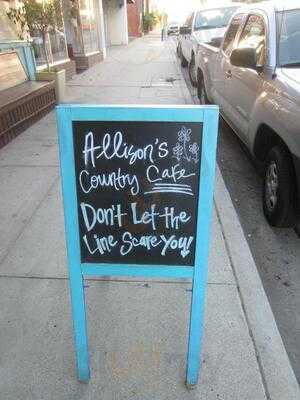 Allison's
Country Cafe
Don't Let the
Line Scare You!